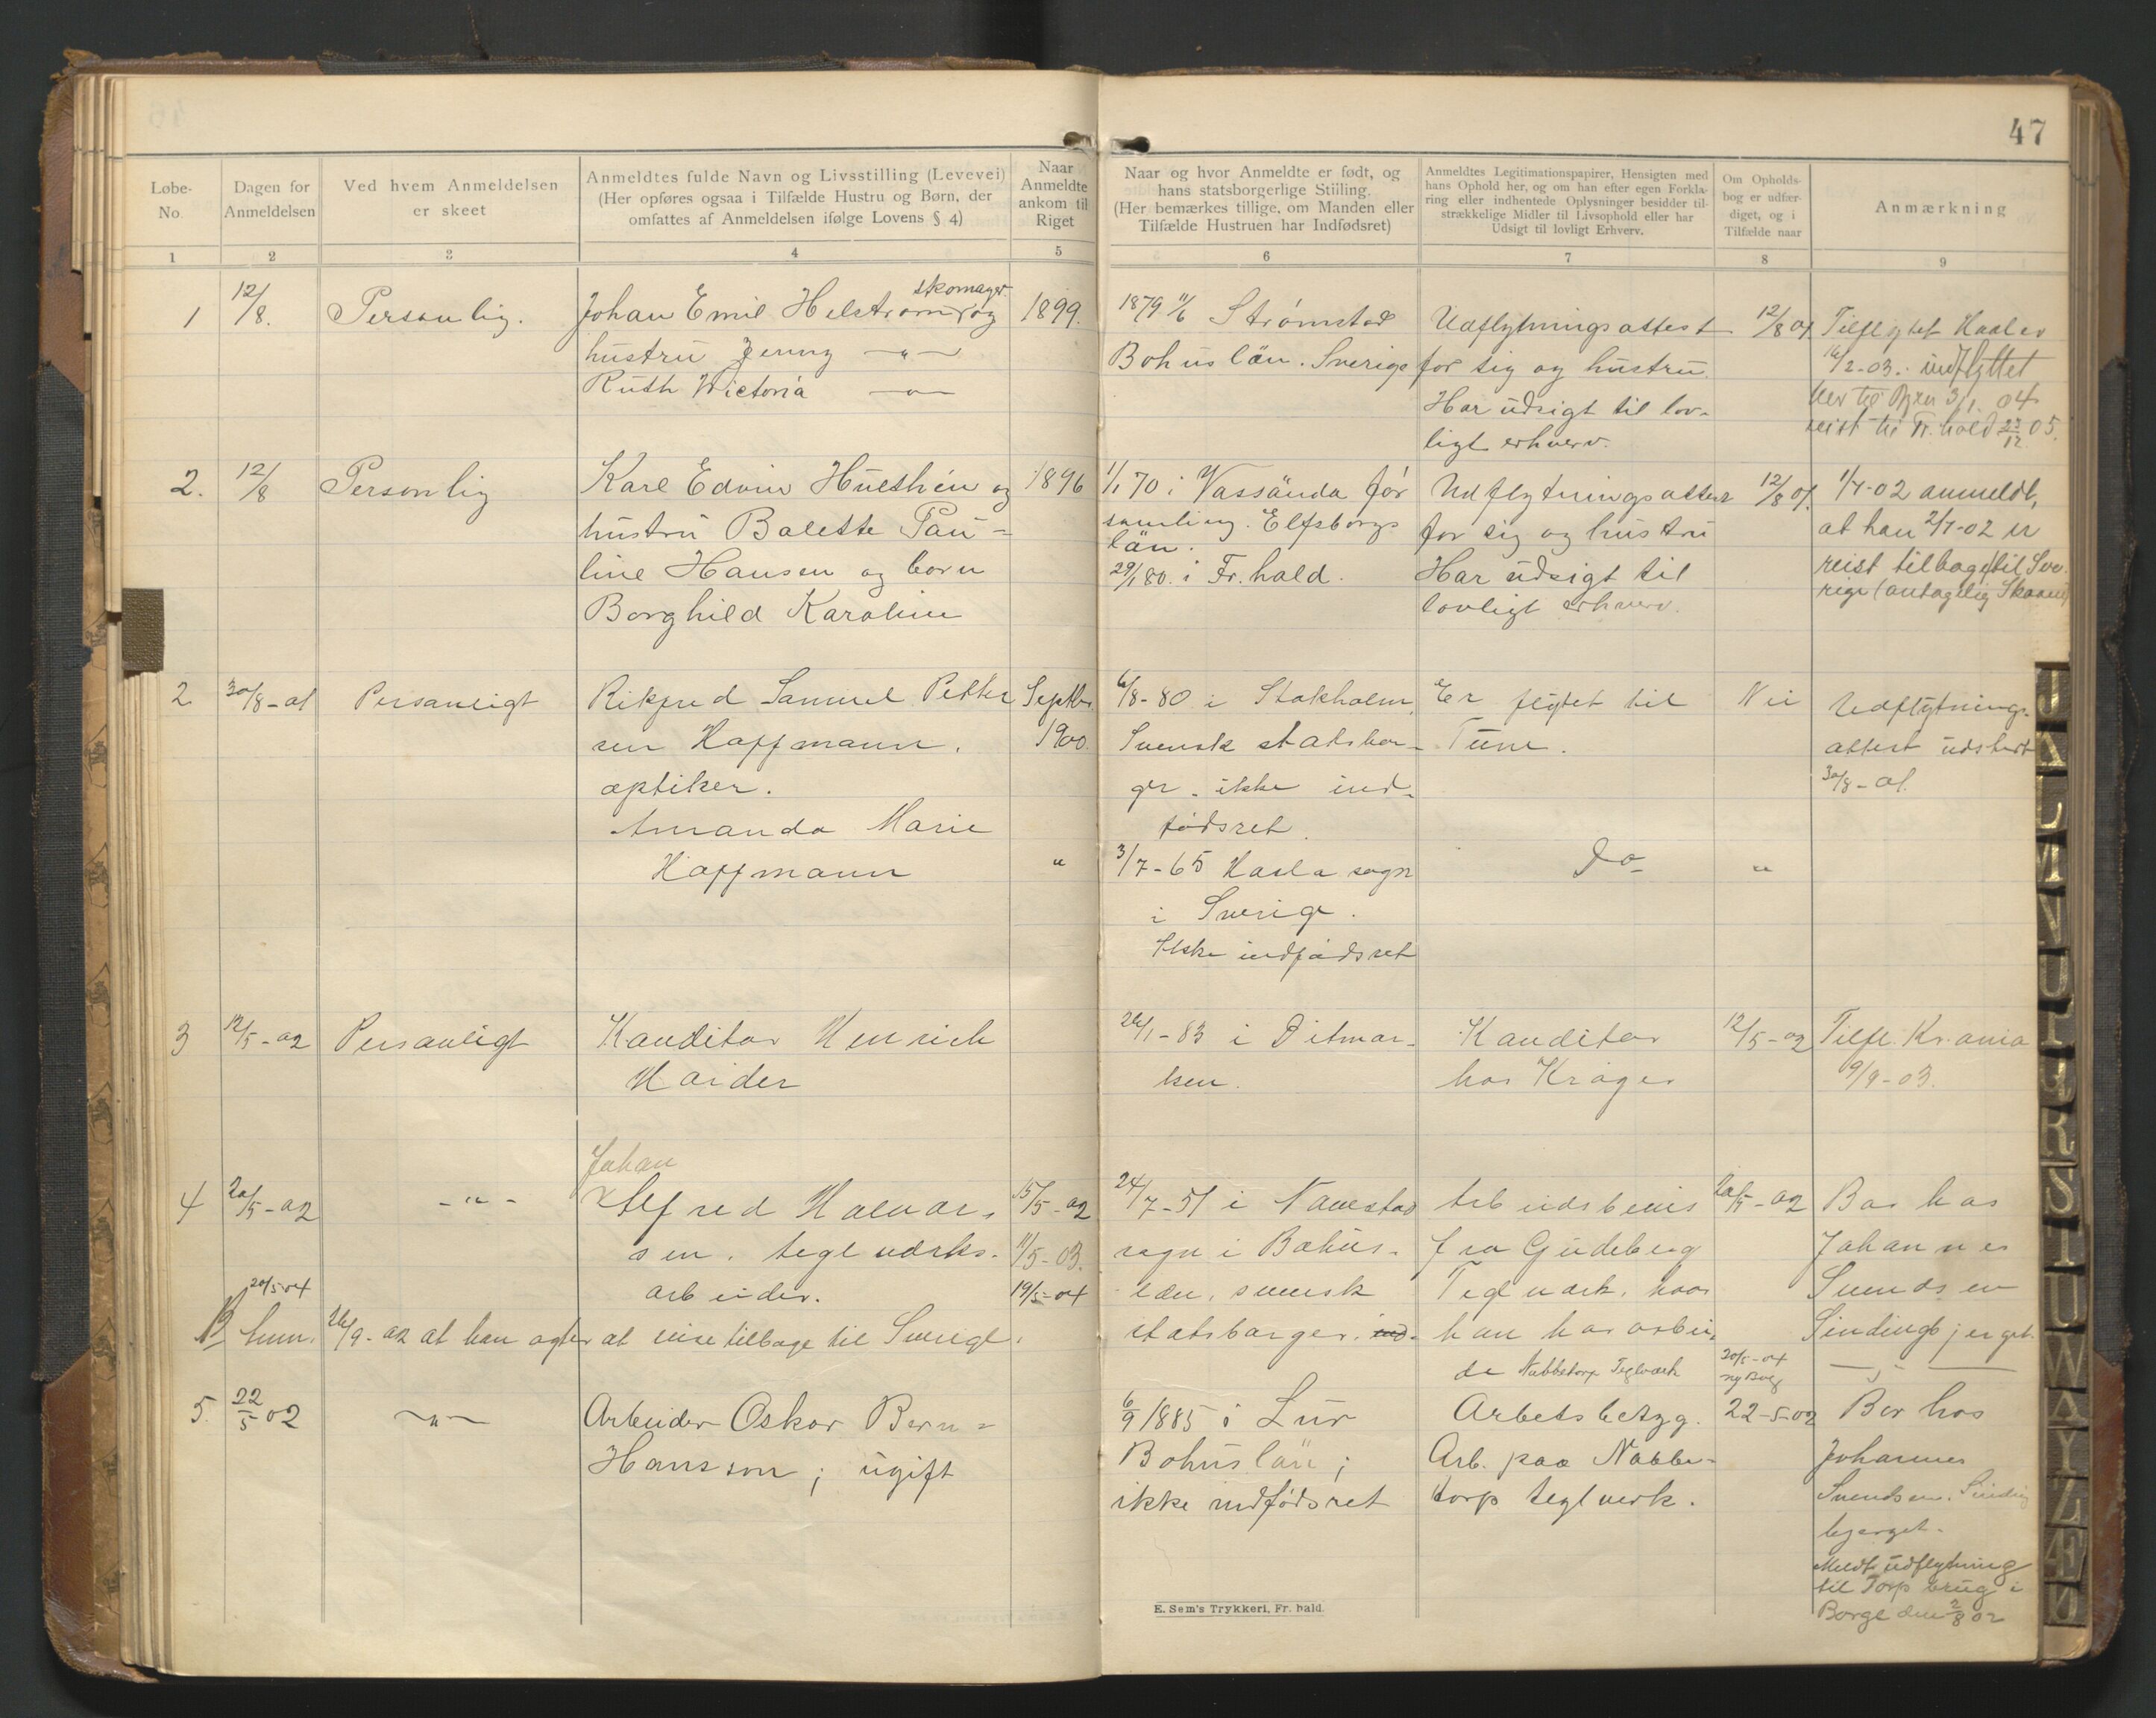 47
Løbe-
No.
Dagen for
Anmeldelsen
Ved hvem Anmeldelsen
er skeet
Anmeldtes fulde Navn og Livsstilling (Levevei)
(Her opføres ogsaa i Tilfælde Hustru og Børn, der
omfattes af Anmeldelsen ifølge Lovens § 4)
Naar
Anmeldte
ankom til
Riget
Naar og hvor Anmeldte er født, og
hans statsborgerlige Stiiling.
(Her bemærkes tillige, om Manden eller
Tilfælde Hustruen har Indfødsret)
Anmeldtes Legitimationspapirer, Hensigten med
hans Ophold her, og om han efter egen Forkla-
ring eller indhentede Oplysninger besidder til-
strækkelige Midler til Livsophold eller har
Udsigt til lovligt Erhverv.
Om Opholds-
bog er udfær-
diget, og i
Tilfælde naar
Anmærkning
1 2 3 4 5 6 7 8 9
1
12/8.
Personlig.
skomager
Johan Emil Helstrøm og
hustru Jenny —"—
Ruth Victoria —"—
1899.
1879 11/6 Strømstad
Bohuslän. Sverige
Udflytningsattest
for sig og hustru.
Har udsigt til lov-
ligt erhverv.
12/8 01.
Tilflytet Haaløv
16/2-03. udflyttet
3/1. 04
reist til Fr.hald 27/12 05.
2.
12/8
Personlig
Karl Edvin Hulthén og
hustru Balette Pau-
line Hansen og born
Borghild Karoline
1896
1/1 70 i Vassända för
samling. Elfsborgs
län.
29/1 80. i Fr.hald.
Udflytningsattest
for sig og hustru
Har udsigt til
lovligt erhverv.
12/8 01.
1/7-02 anmeldt,
at han 2/7-02 er
reist tilbage til Sve-
rige (antagelig Skaane)
2
30/8-01
Personligt
Rikfred Samuel Petter
sen Hoffmann.
optiker.
Amanda Marie
Hoffmann
Septbr.
1900.
"
6/8-80 i Stokholm.
Svensk statsbor-
ger. ikke ind-
fødsret.
3/7-65 Harla sogn
i Sverige.
Ikke indfødsret
Er flytet til
Tune.
Do
Nei
"
Udflytnings-
attest udstedt
30/8-01.
3
12/5-02
Personligt
Konditor Henrich
Harder
26/1-83 i Ditmar-
sken.
Konditor
hos Krøger
12/5-02
Tilfl. Kr.ania
9/9-03.
4
20/5-02
-"-
Johan
Alfred Halvor-
sen. teglværks-
arbeider.
15/5-02
11/5-03.
19/5-04
24/7-51 i Naverstad
sogn i Bohus-
len, svensk
statsborger. ind-
Arbeidsbevis
fra Gudeberg
Teglværk, hvor
han har arbei-
de Nabbetorp Teglværk
20/5-02
20/5-04
ny Bog
Bor hos
Johannes
Svendsen
Sindingbjerget.
20/5 04
26/9-02 at han agter at reise tilbage til Sverige.
5.
22/5 02
—"—
Arbeider Oskar Bern-
Hansson; ugift
6/9 1885 i Lur
Bohuslän;
ikke indfødsret
Arbetsbetyg.
Arb. paa Nabbe-
torp teglverk.
22-5-02
Bor hos
Johannes
Svendsen. Sinding
bjerget.
Meldt udflytning
til Torp brug i
Borge den 2/8 02
E. Sem's Trykkeri, Fr. hald.
J
K
L
M
N
O
P
R
S
T
U
W
Y
Z
Æ
Ø